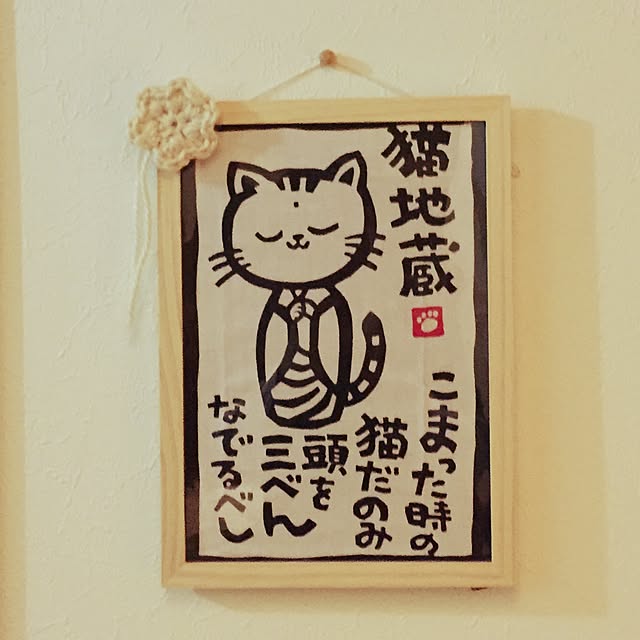 猫地蔵
こまった時の
猫だのみ
頭を
三べん
なでるべし